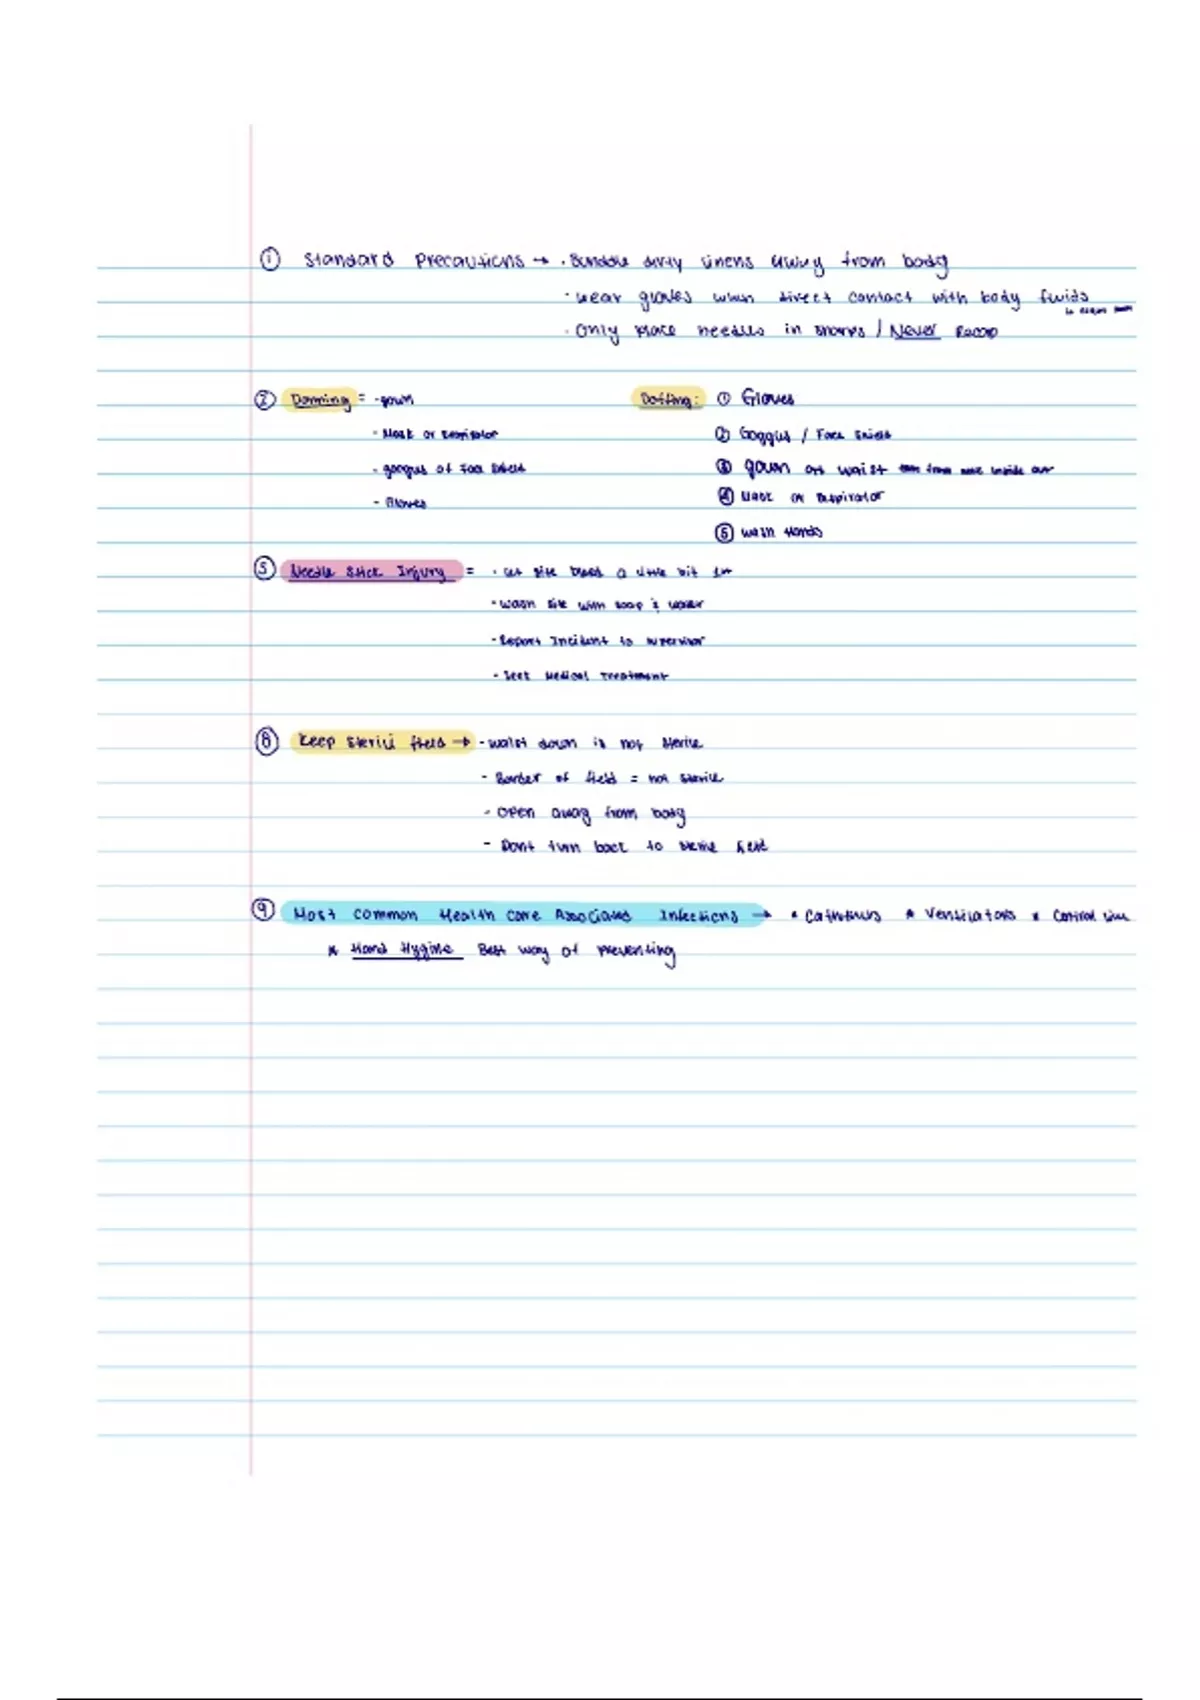 ① Standard Precautions → · Bundle dirty linens away from body
· wear gloves when direct contact with body fluids
· Only place needles in sharps / Never Recap
② Donning = - gown
- Mask or respirator
- goggles of Face Shield
- Gloves
Doffing: ① Gloves
② Goggles / Face Shield
③ gown at waist then from neck inside out
④ Mask or Respirator
⑤ Wash Hands
⑤ Needle Stick Injury = · Let site bleed a little bit 1st
- wash site with soap & water
- Report Incident to supervisor
- Seek Medical Treatment
⑧ Keep Sterile field → - waist down is not sterile
- Border of field = not sterile
- Open away from body
- Dont turn back to sterile field
⑨ Most Common Health Care Associated Infections → * Catheters * Ventilators * Central line
* Hand Hygine Best way of preventing